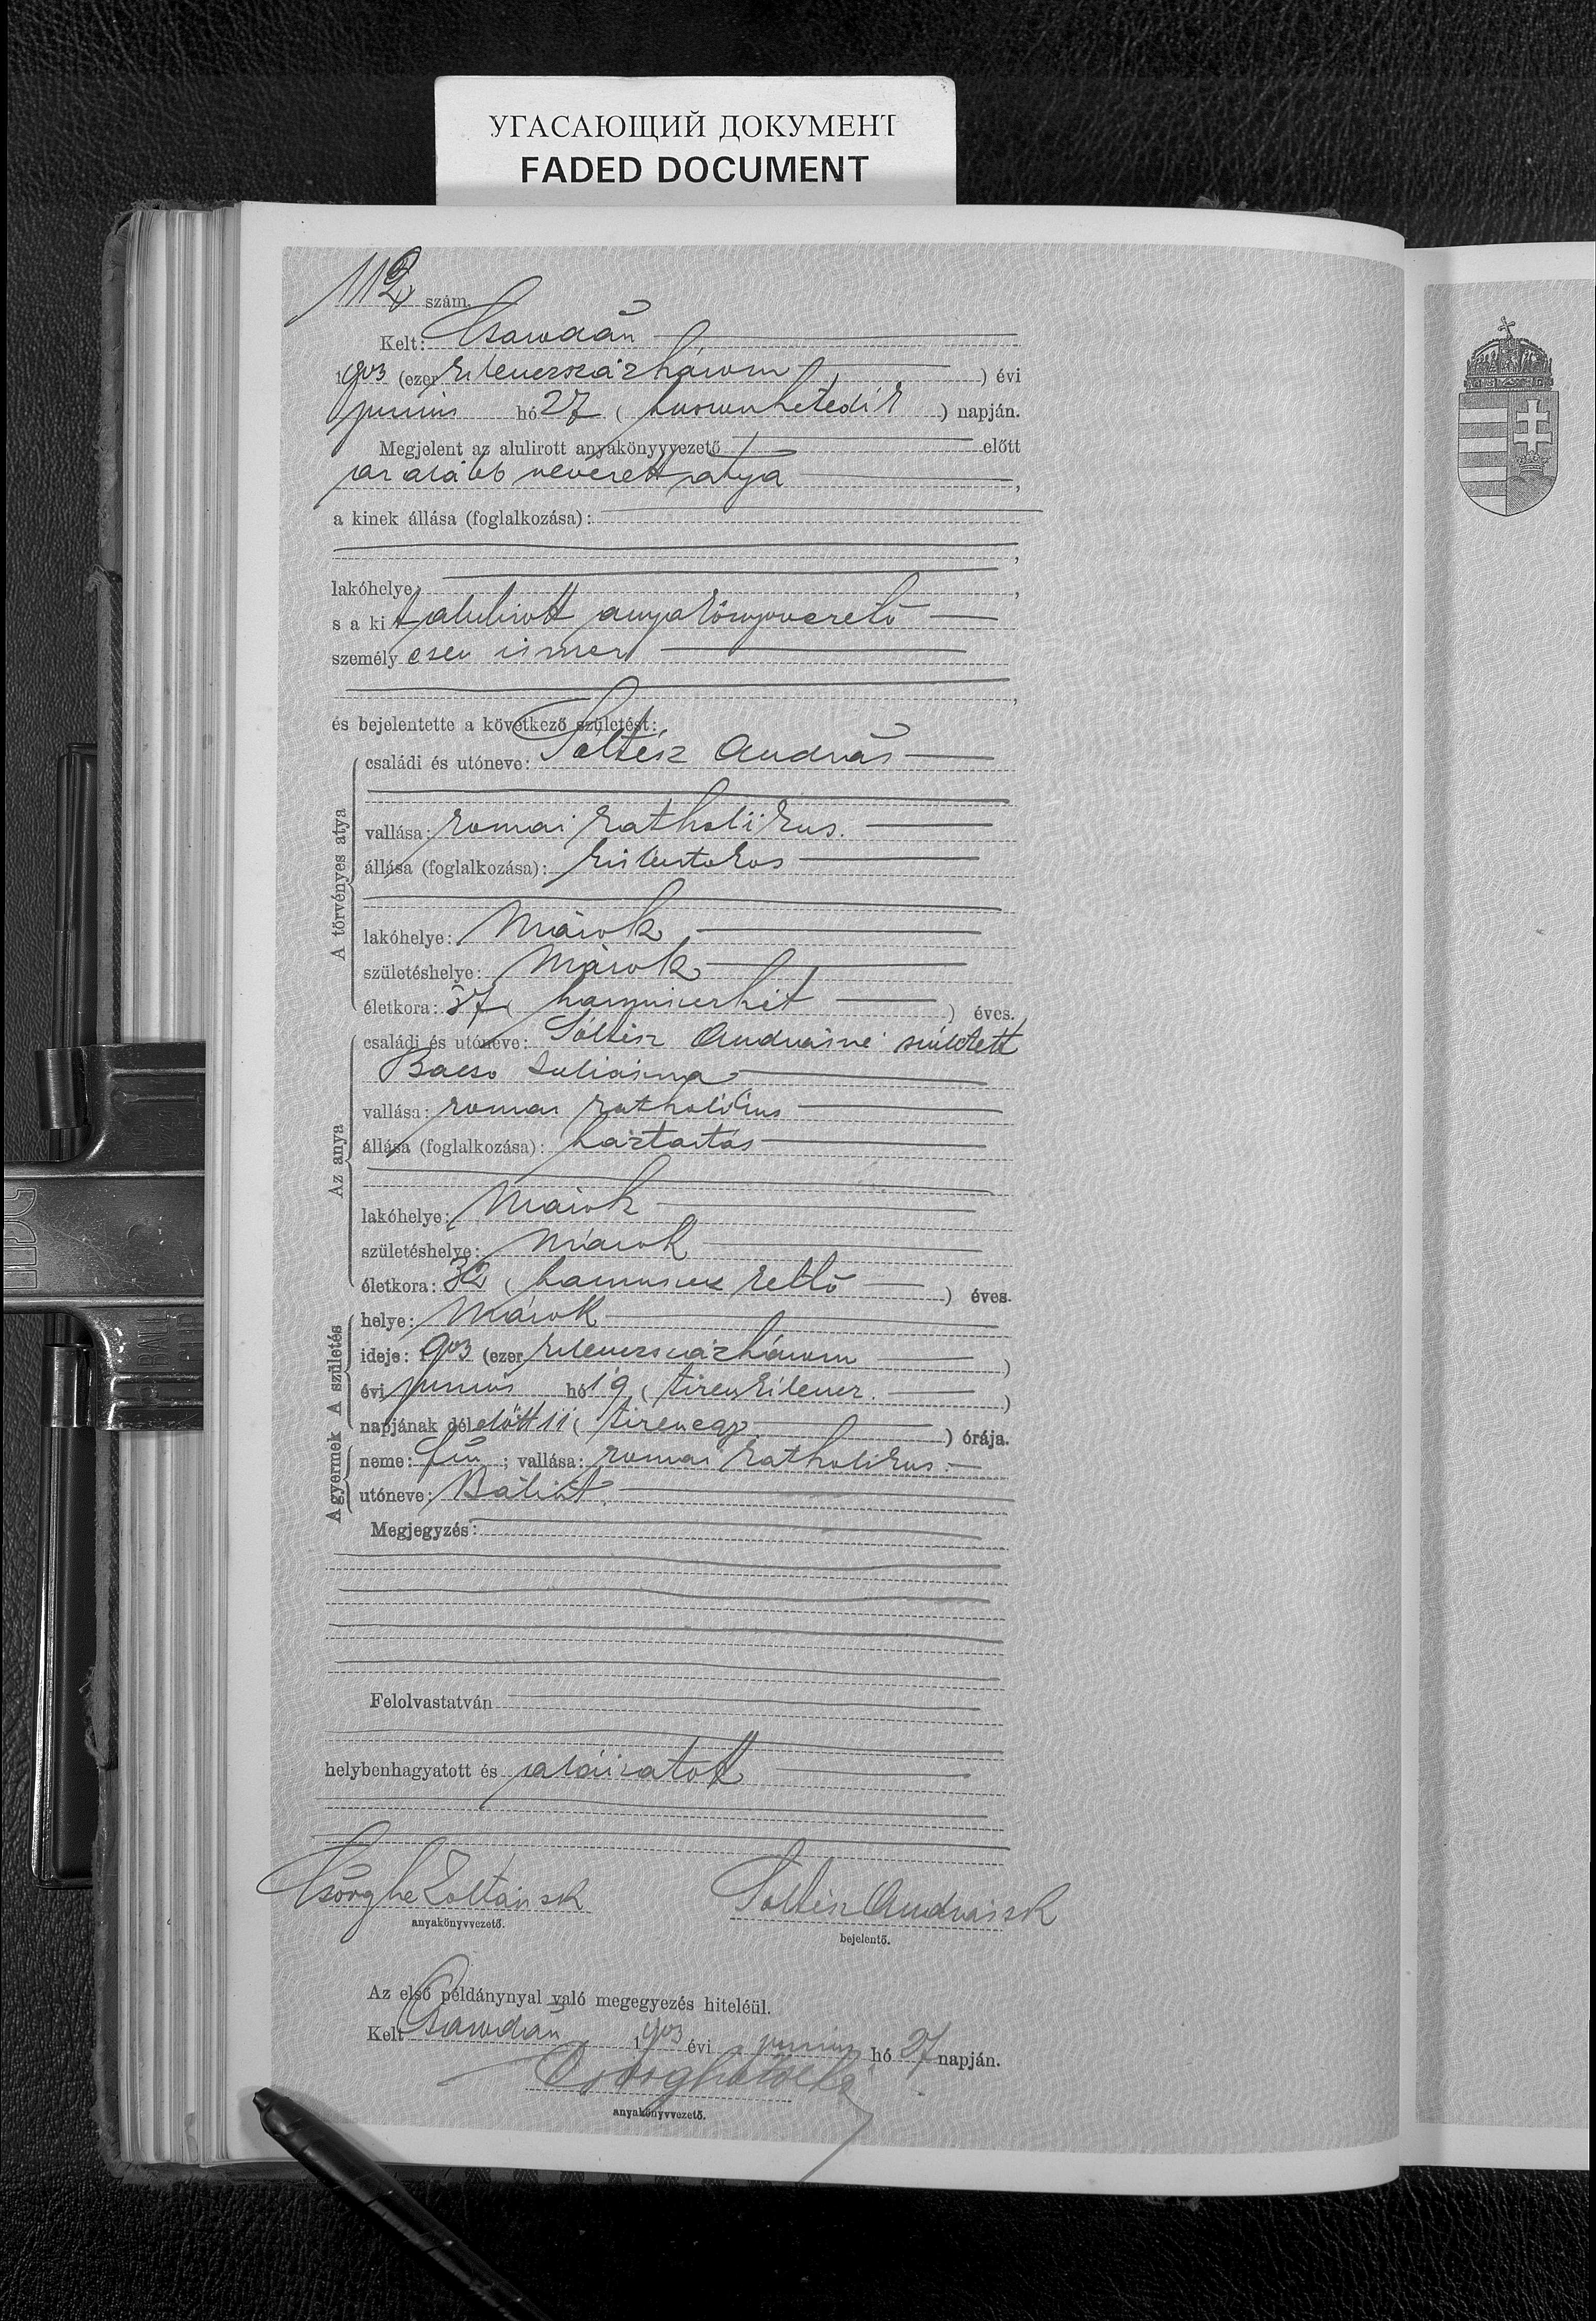 УГАСАЮЩИЙ ДОКУМЕНТ
FADED DOCUMENT
112 szám.
Kelt: Csarodán
1903 (ezer kilencszázhárom) évi
junius hó 27 (huszonhetedik) napján.
Megjelent az alulirott anyakönyvvezető előtt
az alább nevezett atya,
a kinek állása (foglalkozása):
,
lakóhelye ,
s a kit alulirott anyakönyvvezető
személyesen ismer
,
és bejelentette a következő születést:
A törvényes atya
családi és utóneve: Soltész András
vallása: romai katholikus.
állása (foglalkozása): kisbirtokos
lakóhelye: Márok
születéshelye: Márok
életkora: 37 (harminczhét) éves.
Az anya
családi és utóneve: Sóltész Andrásné született
Bacso Juliánna
vallása: romai katholikus
állása (foglalkozása): háztartás
lakóhelye: Márok
születéshelye: Márok
életkora: 32 (harmincz kettő) éves.
A születés
helye: Márok
ideje: 1903 (ezer kilenczszázhárom)
évi junius hó 19 (tizenkilencz.)
napjának délelőtt 11 (tizenegy) órája.
A gyermek
neme: fiu; vallása: romai katholikus.
utóneve: Bálint.
Megjegyzés:
Felolvastatván
helybenhagyatott és aláiratott
Csörghe Zoltán sk Soltész András sk
anyakönyvvezető. bejelentő.
Az első példánynyal való megegyezés hiteléül.
Kelt Csarodán 1903 évi junius hó 27 napján.
anyakönyvvezető.